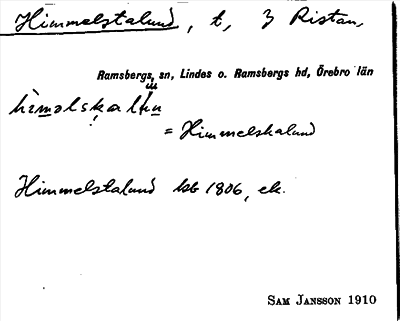 Himmelstalund, t, 3 Ristan,
Ramsbergs sn, Lindes o. Ramsbergs hd, Örebro län
= Himmelskalund
Himmelstalund hsb 1806, ek.
SAM JANSSON 1910